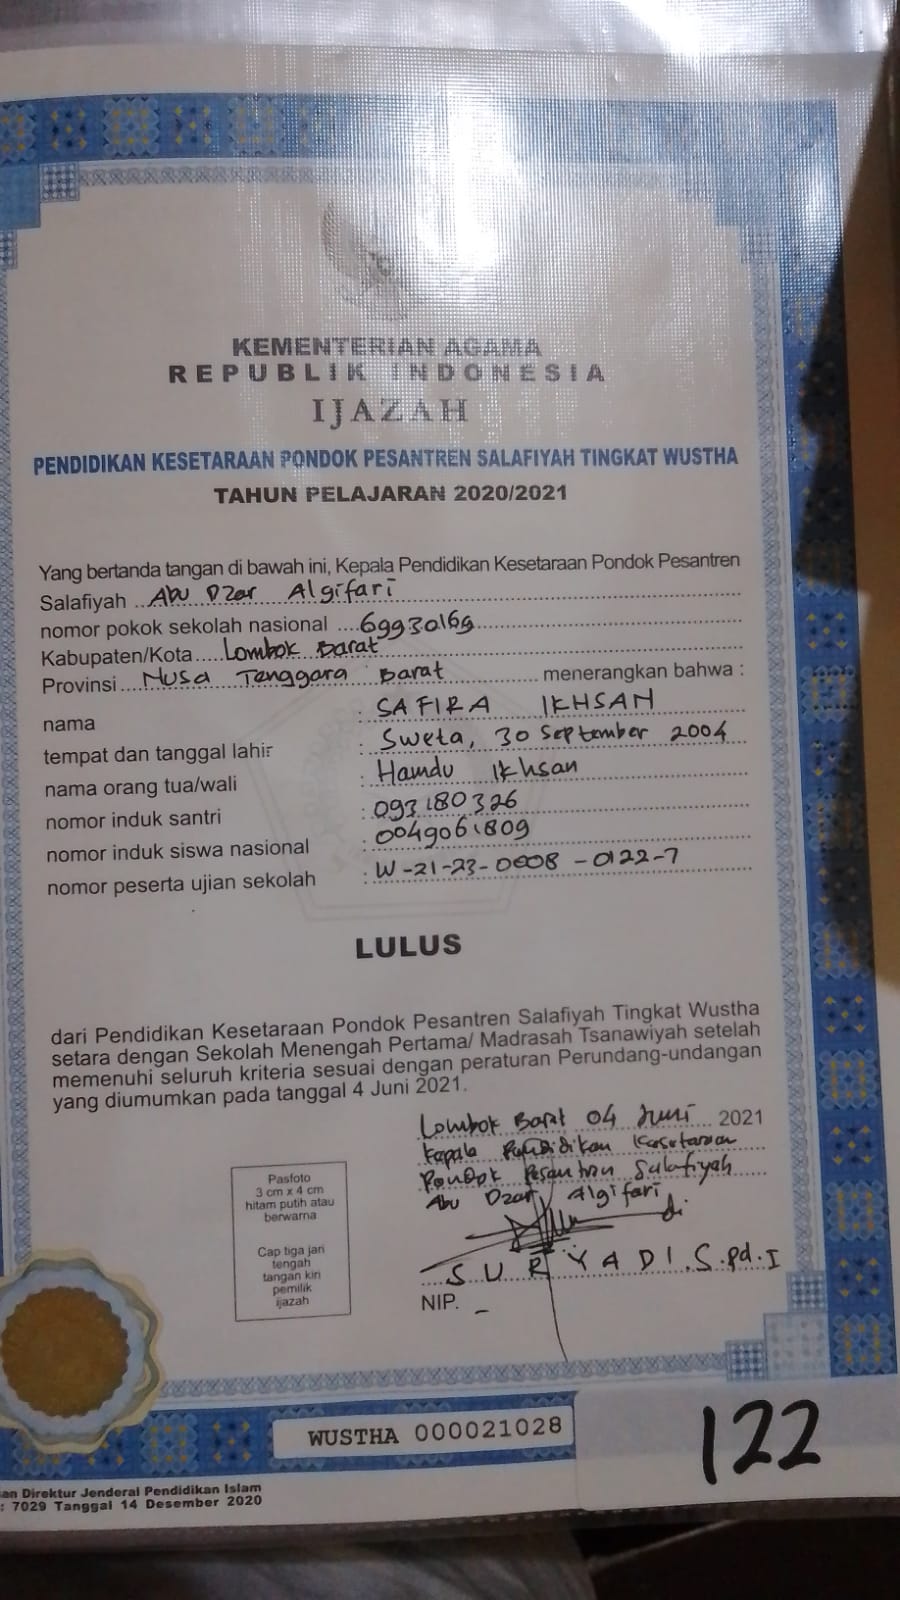 KEMENTERIAN AGAMA
REPUBLIK INDONESIA
IJAZAH
PENDIDIKAN KESETARAAN PONDOK PESANTREN SALAFIYAH TINGKAT WUSTHA
TAHUN PELAJARAN 2020/2021
Yang bertanda tangan di bawah ini, Kepala Pendidikan Kesetaraan Pondok Pesantren
Salafiyah Abu Dzar Algifari
nomor pokok sekolah nasional 69930169
Kabupaten/Kota Lombok Barat
Provinsi Nusa Tenggara Barat menerangkan bahwa :
nama : SAFIRA IKHSAN
tempat dan tanggal lahir : Sweta, 30 September 2004
nama orang tua/wali : Hamdu Ikhsan
nomor induk santri : 093180326
nomor induk siswa nasional : 0049061809
nomor peserta ujian sekolah : W-21-23-0008-0122-7
LULUS
dari Pendidikan Kesetaraan Pondok Pesantren Salafiyah Tingkat Wustha
setara dengan Sekolah Menengah Pertama/ Madrasah Tsanawiyah setelah
memenuhi seluruh kriteria sesuai dengan peraturan Perundang-undangan
yang diumumkan pada tanggal 4 Juni 2021.
Lombok Barat 04 Juni 2021
Kepala Pendidikan Kesetaraan
Pondok Pesantren Salafiyah
Abu Dzar Algifari
SURYADI.S.pd.I
NIP. -
Pasfoto
3 cm x 4 cm
hitam putih atau
berwarna
Cap tiga jari
tengah
tangan kiri
pemilik
ijazah
WUSTHA 000021028
122
an Direktur Jenderal Pendidikan Islam
: 7029 Tanggal 14 Desember 2020